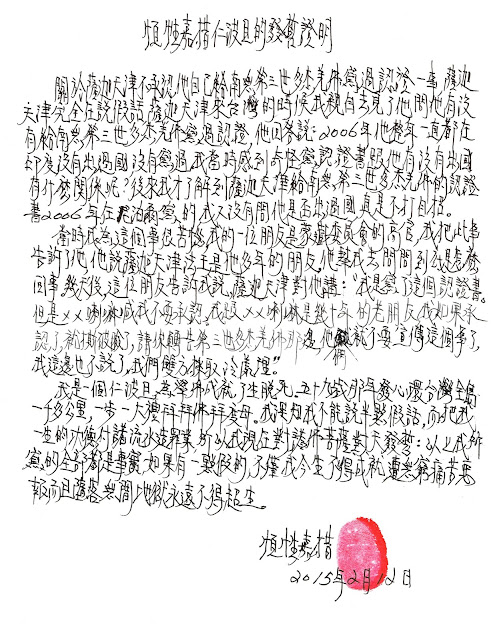 恒性嘉措仁波且的發誓證明
關於薩迦天津不承認他自己給南無第三世多杰羌佛寫過認證一事,薩迦
天津完全在說假話,薩迦天津來台灣的時候我親自去見了他,問他有沒
有給南無第三世多杰羌佛寫過認證,他回答說:2006年他整年一直都在
印度沒有出過國沒有寫過,我當時感到奇怪寫認證書跟他有沒有出國
有什麼關係呢?後來我才了解到薩迦天津給南無第三世多杰羌佛的認證
書2006年在尼泊爾寫的,我又沒有問他是否出過國,真是不打自招。
當時我為這個事很苦惱,我的一位朋友是蒙藏委員會的高官,我把此事
告訴了他,他說薩迦天津法王是他多年的朋友,他幫我去問問到底是怎麼
回事。幾天後,這位朋友告訴我說,薩迦天津對他講:“我是寫了這個認證書,
但是××喇嘛喊我不要承認,我跟××喇嘛是幾十年的老朋友,我如果承
認了就撕破臉了,請你轉告第三世多杰羌佛那邊,他們就不要宣傳這個事了,
我這邊也不說了,我們雙方採取冷處理。”
我是一個仁波且,為學佛成就了生脫死,五十九歲那年發心環台灣全島
一千多公里,一步一大禮拜拜佛拜度母。我深知我不能說半點假話,而把我
一生的功德付諸流水造罪業,所以我現在對諸佛菩薩對天發誓:以上我所
寫的全部都是事實,如果有一點假的,不僅我今生不得成就,遭惡窮痛苦果
報而且墮落無間地獄永遠不得超生。
恒性嘉措
2015年2月12日